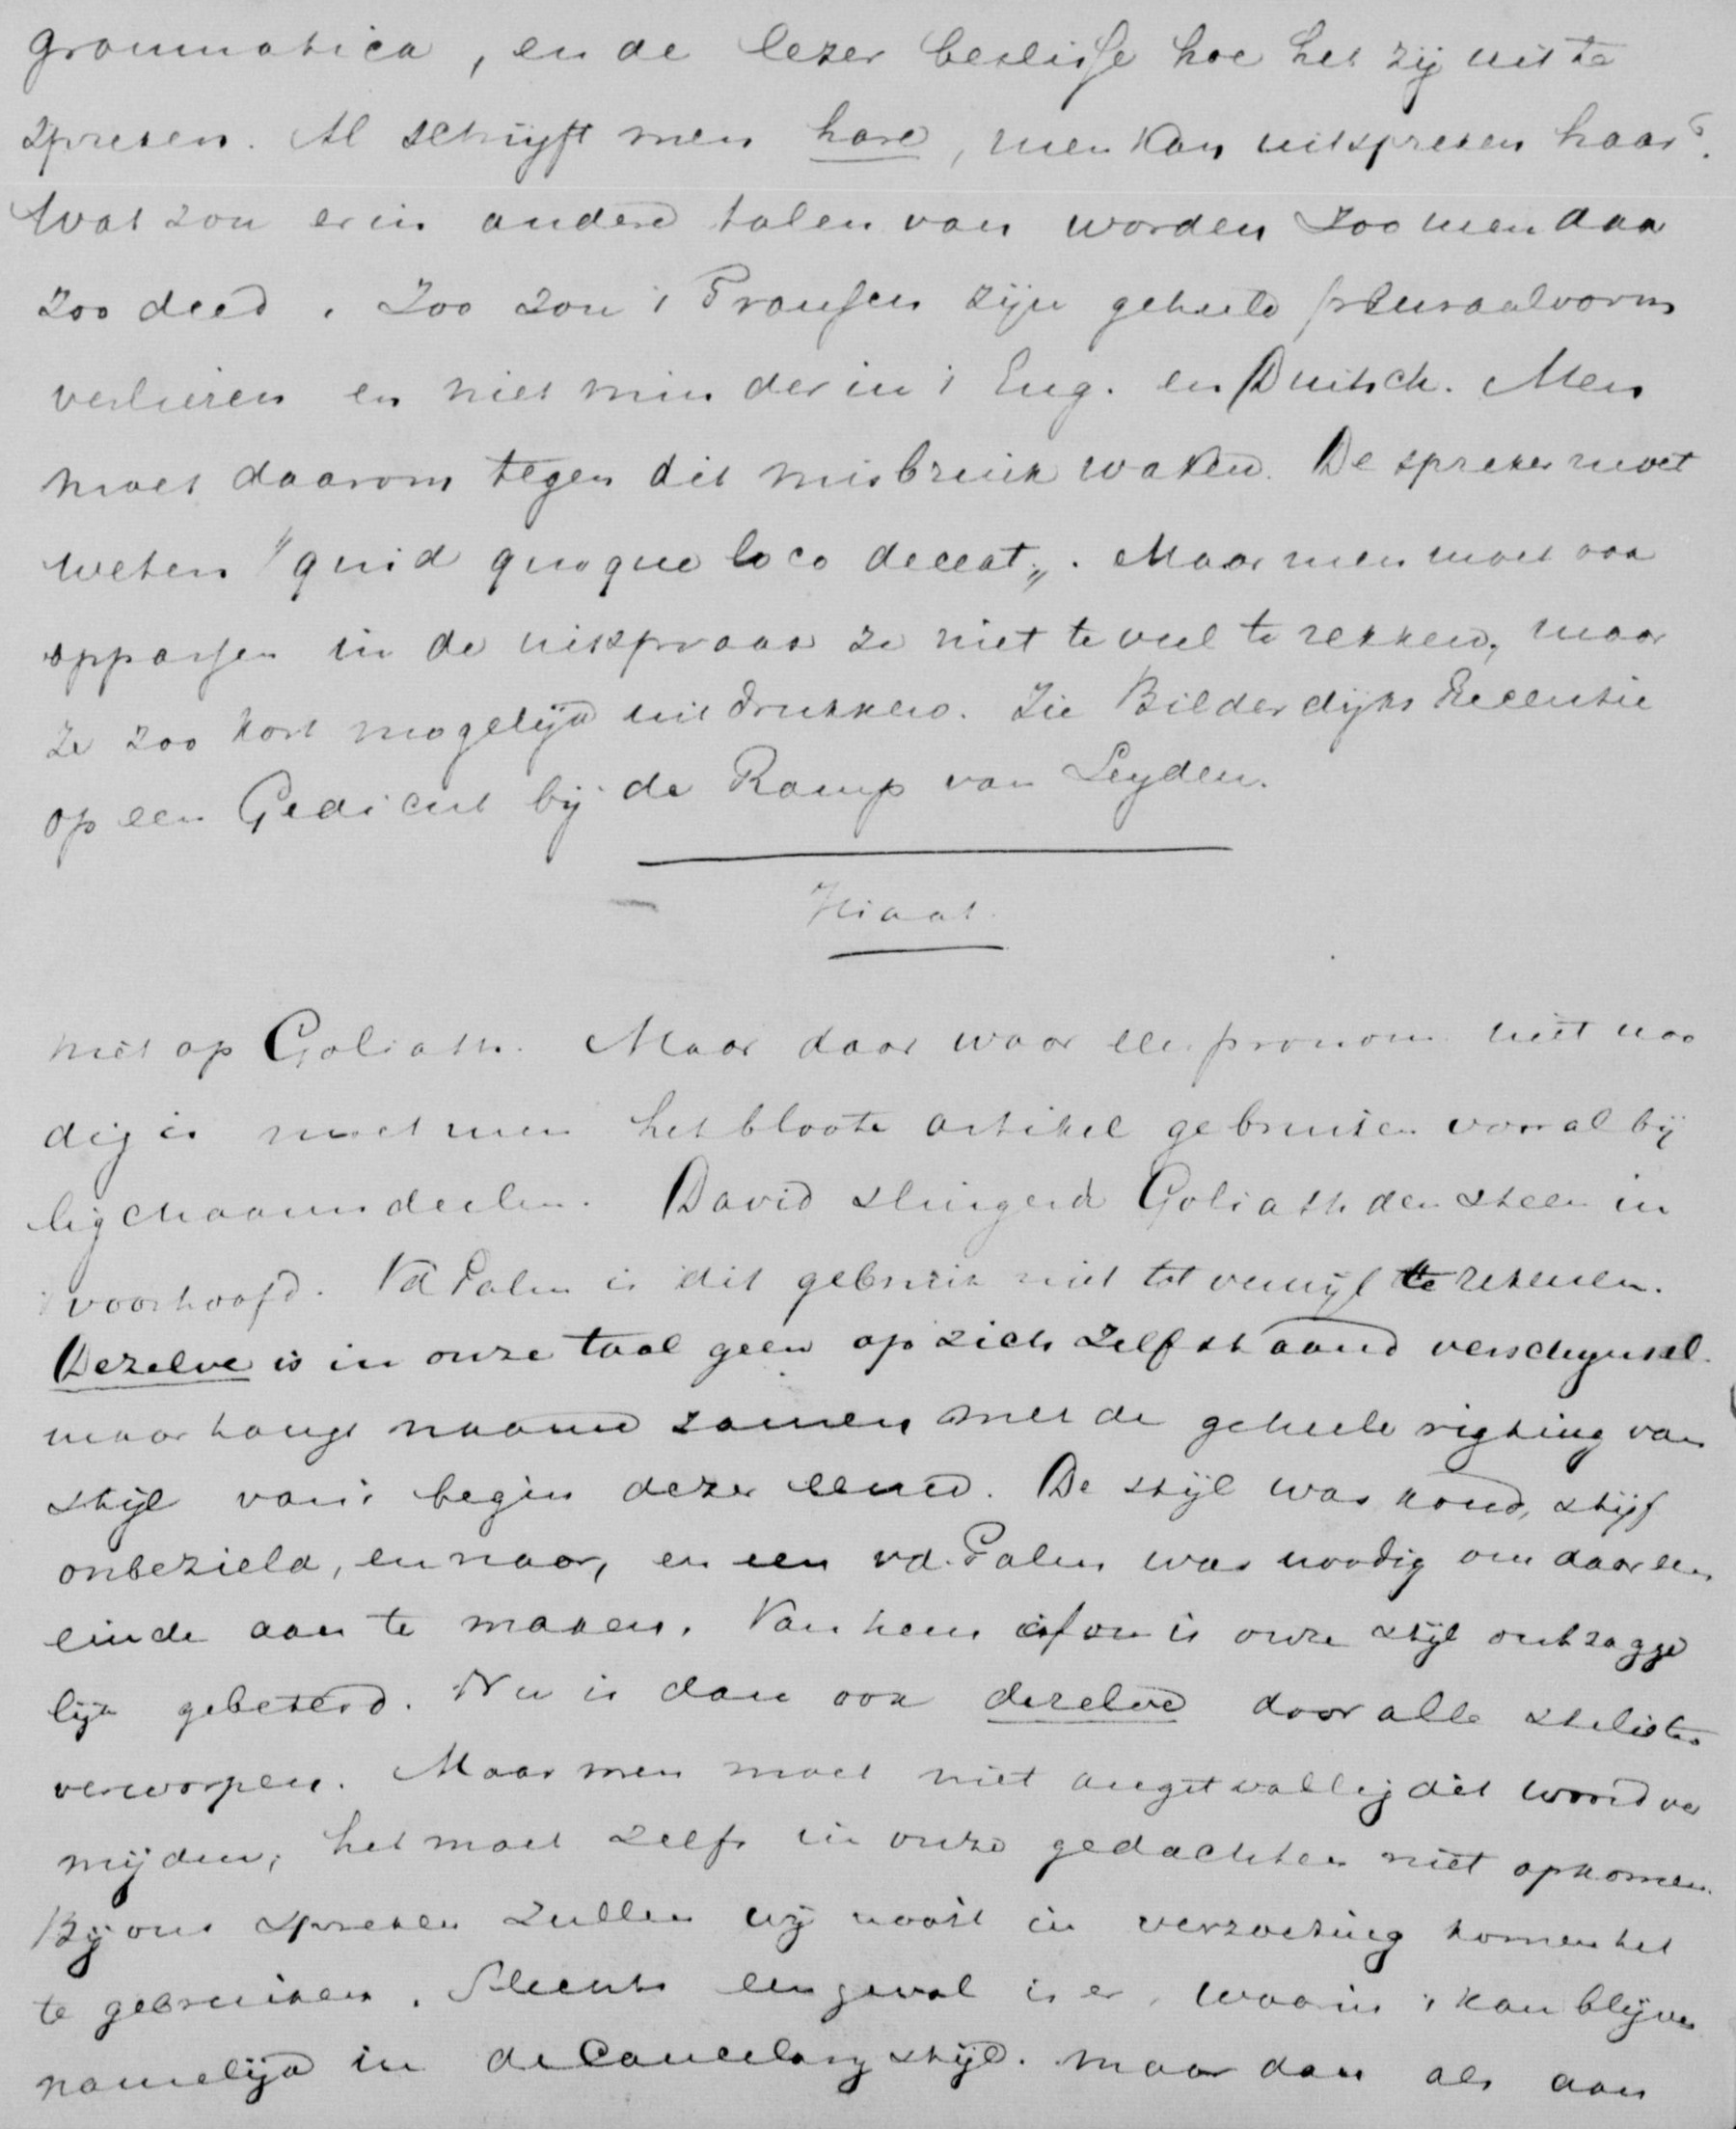 grammatica, en de lezer beslisse hoe het zij uit te
spreken. Al schrijft men hare, men kan uitspreken haar'.
Wat zou er in andere talen van worden zoo men daar
zoo deed. Zoo zou 't Fransch zijn geheele pluraalvorm
verliezen en niet minder in 't Eng. en Duitsch. Men
moet daarom tegen dit misbruik waken. De spreker moet
weten "quid quoque loco deceat„. Maar men moet ook
oppassen in de uitspraak ze niet te veel te rekken, maar
ze zoo kort mogelijk uitdrukken. Zie Bilderdijks Recensie
op een Gedicht bij de Ramp van Leyden.
Hiaat.
niet op Goliath. Maar daar waar een pronom. niet noo
dig is moet men het bloote artikel gebruiken vooral bij
ligchaamsdeelen. David slingerde Goliath den steen in
't voorhoofd. Vd Palm is dit gebruik niet tot verwijt te rekenen.
Dezelve is in onze taal geen op zich zelf staand verschijnsel.
maar hangt naauw samen met de geheele rigting van
stijl van 't begin dezer eeuw. De stijl was koud, stijf
onbezield, en naar, en een vd. Palm was noodig om daar een
einde aan te maken. Van hem af aan is onze stijl ontzagge
lijk gebeterd. Nu is dan ook dezelve door alle stelisten
verworpen. Maar men moet niet angstvallig dit woord ver
mijden; het moet zelfs in onze gedachten niet opkomen.
Bij ons spreken zullen wij nooit in verzoeking komen het
te gebruiken. Slechts een geval is er, waarin 't kan blijven
namelijk in de Cancelary stijl. maar dan als aan